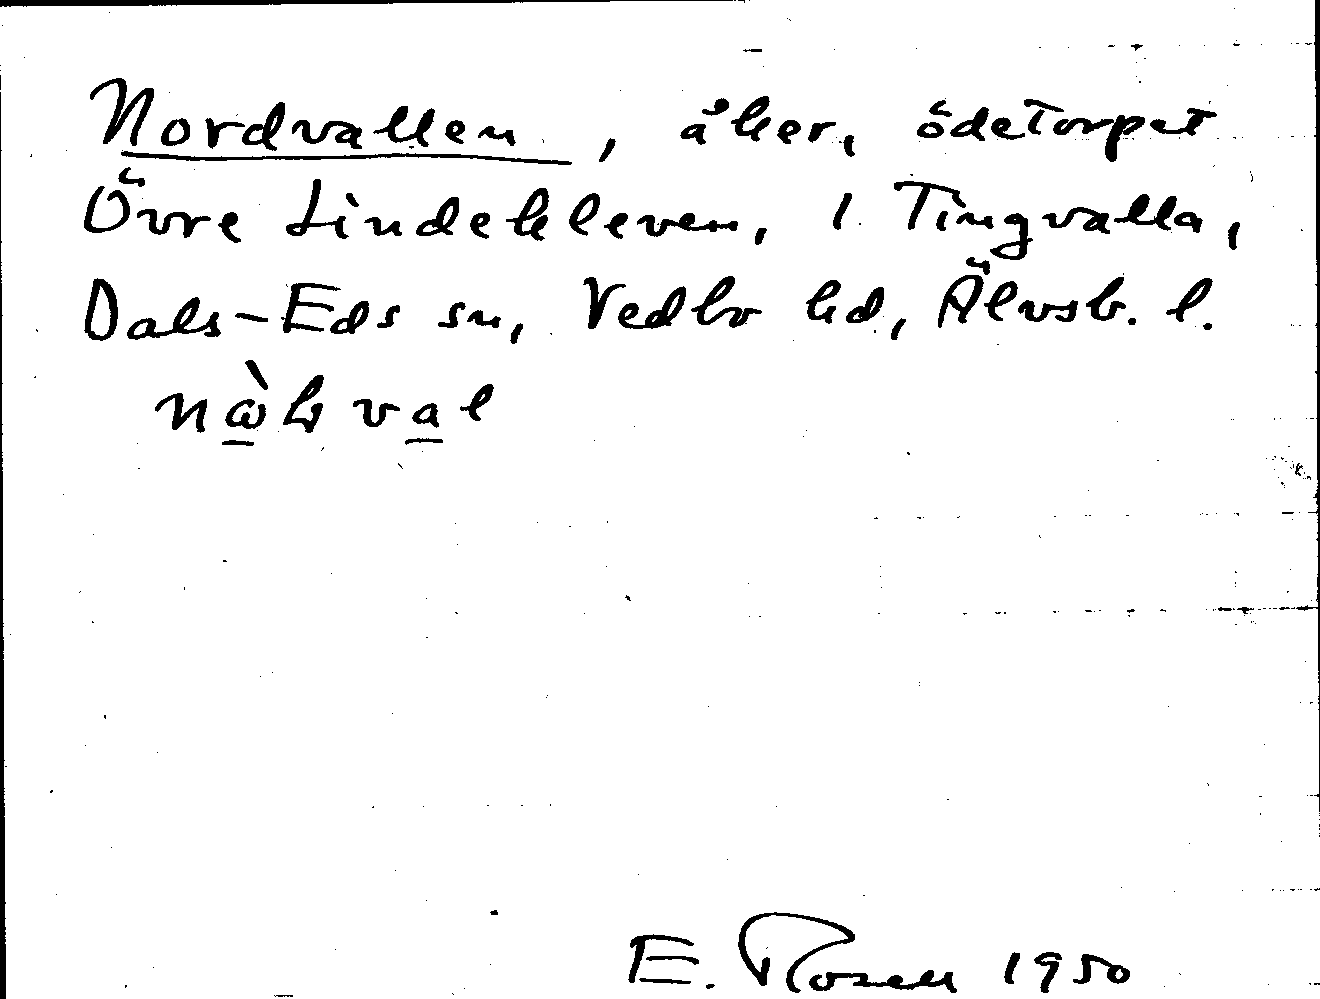 Nordvallen, åker, ödetorpet
Övre Lindekleven, 1 Tingvalla,
Dals-Eds sn, Vedbo hd, Älvsb. l.
E. Rosell 1950